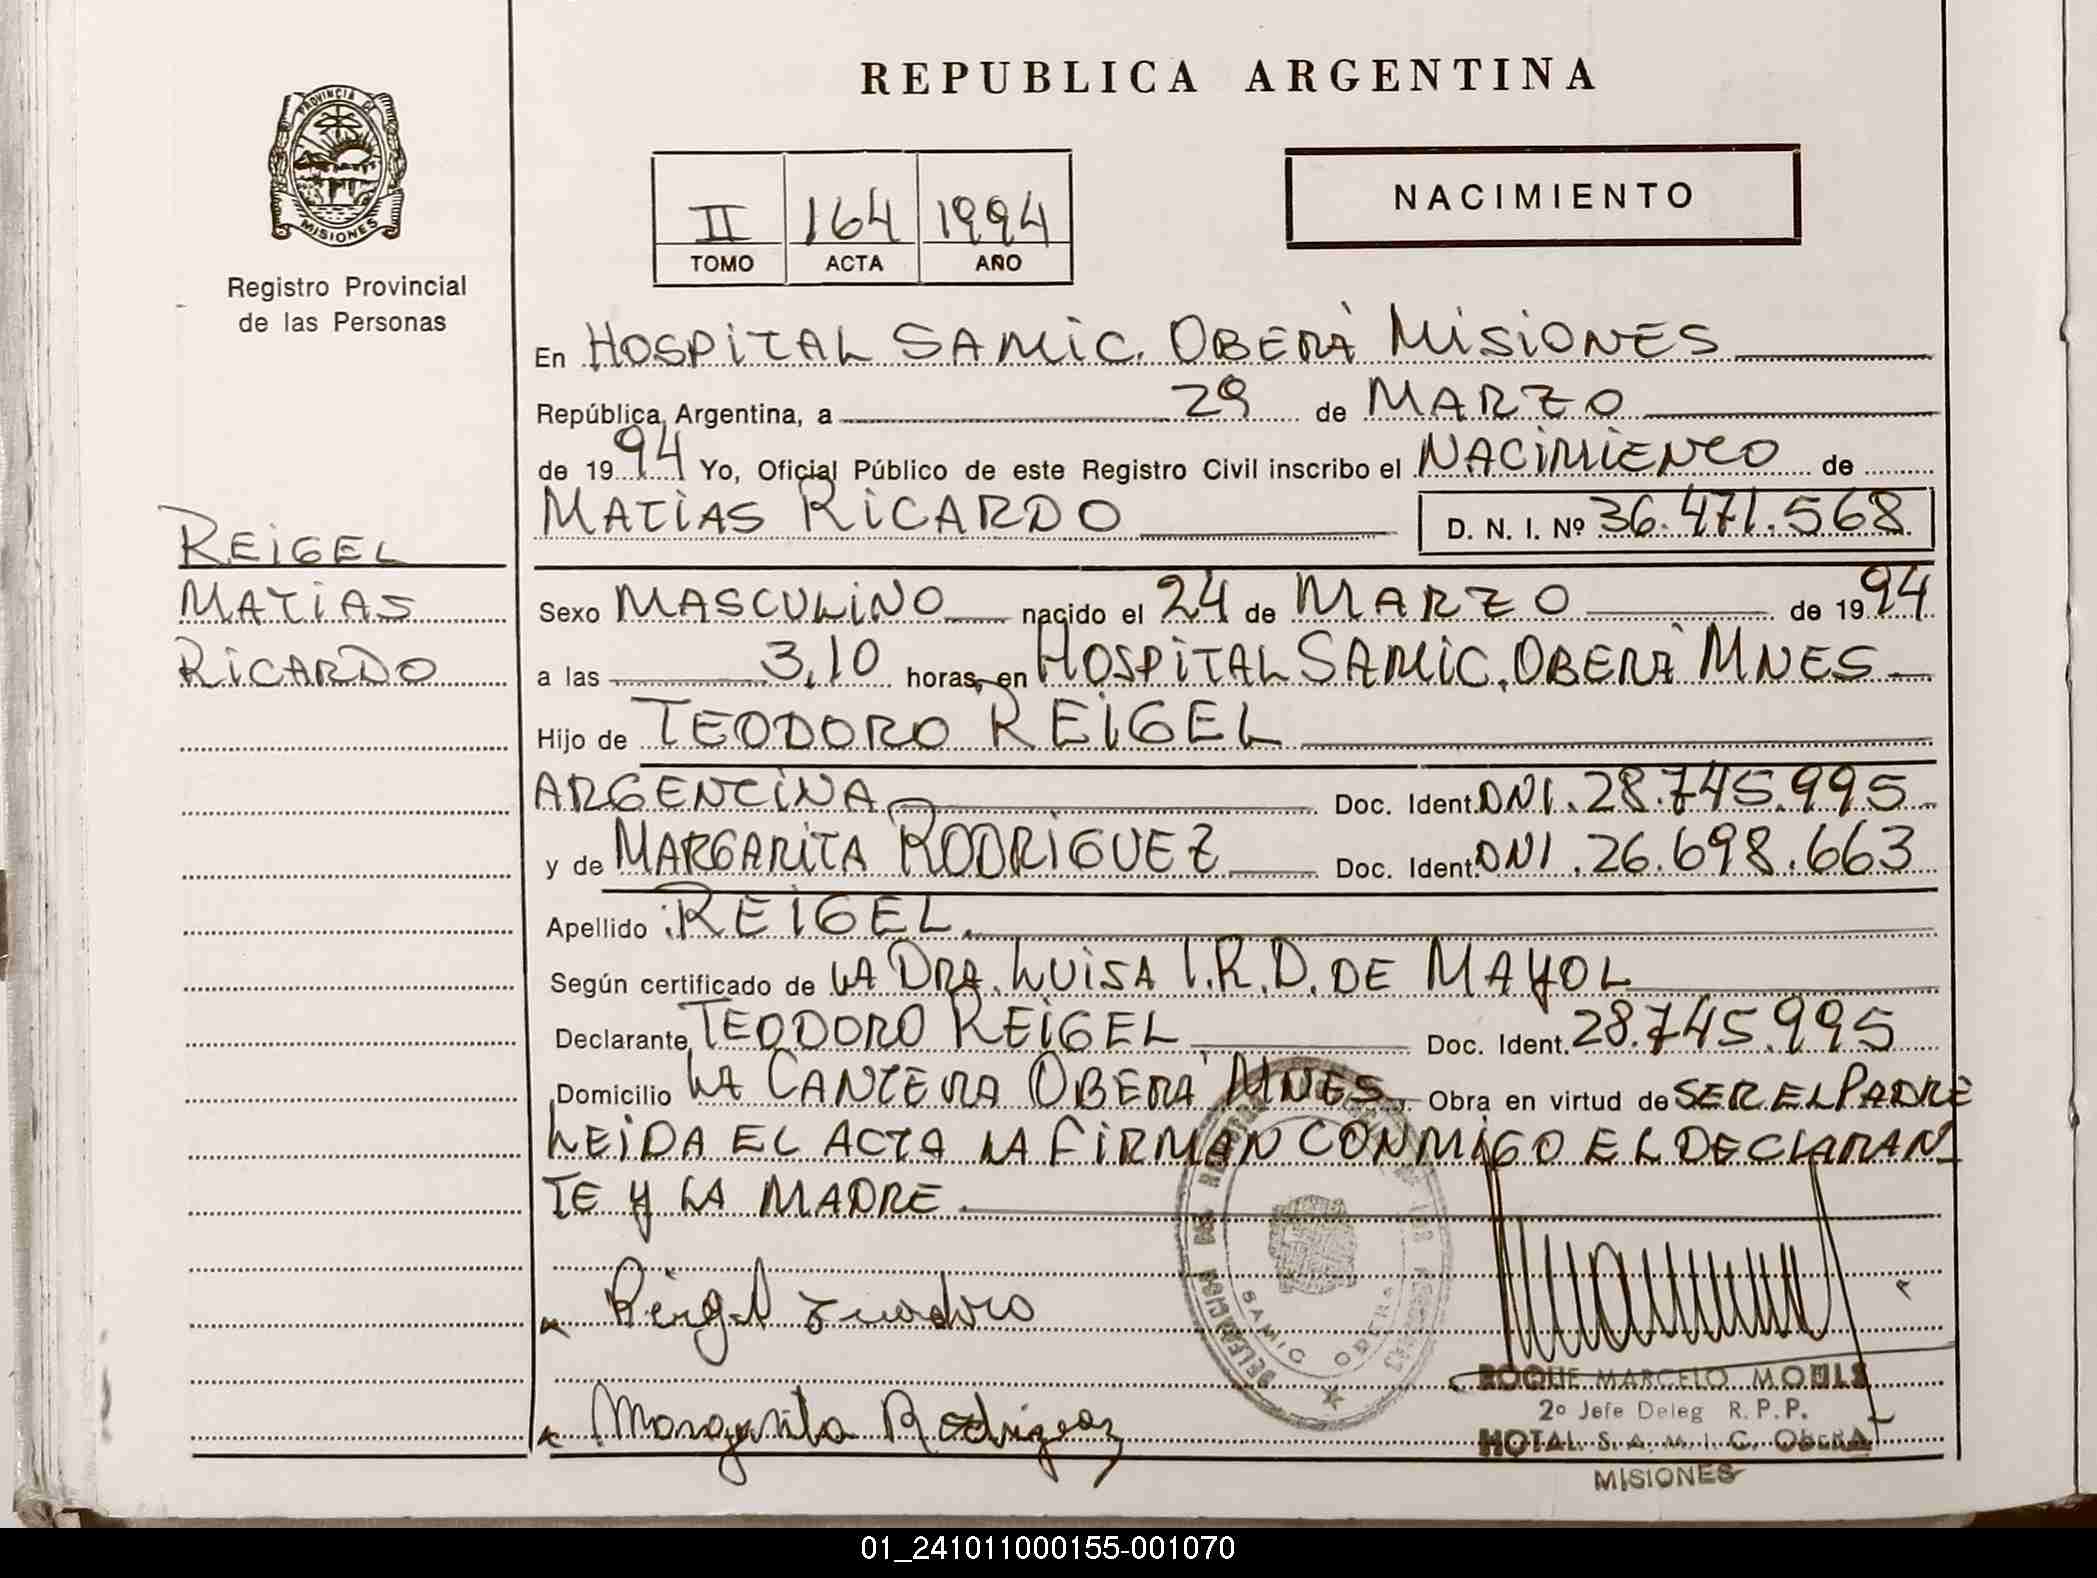 REPUBLICA ARGENTINA
PROVINCIA DE
MISIONES
Registro Provincial
de las Personas
II 164 1994
TOMO ACTA AÑO
NACIMIENTO
En HOSPITAL SAMIC. OBERÁ MISIONES
República Argentina, a 29 de MARZO
de 1994 Yo, Oficial Público de este Registro Civil inscribo el NACIMIENTO de
MATIAS RICARDO D. N. I. Nº 36.471.568
REIGEL
MATIAS
RICARDO
Sexo MASCULINO nacido el 24 de MARZO de 1994
a las 3,10 horas, en HOSPITAL SAMIC. OBERÁ MNES
Hijo de TEODORO REIGEL
ARGENTINA Doc. Ident. DNI. 28.745.995
y de MARGARITA RODRIGUEZ Doc. Ident. DNI. 26.698.663
Apellido: REIGEL.
Según certificado de LA DRA. LUISA I.R.D. DE MAYOL
Declarante TEODORO REIGEL Doc. Ident. 28.745.995
Domicilio LA CANTERA OBERÁ MNES, Obra en virtud de SER EL PADRE
LEIDA EL ACTA LA FIRMAN CONMIGO EL DECLARAN
TE Y LA MADRE.
DELEGACION DEL REGISTRO DE LAS
SAMIC OBERA
Reigel
Margarita Rodriguez
ROQUE MARCELO MOULS
2º Jefe Deleg R.P.P.
HOTAL S.A.M.I.C. OBERA
MISIONES
01_241011000155-001070